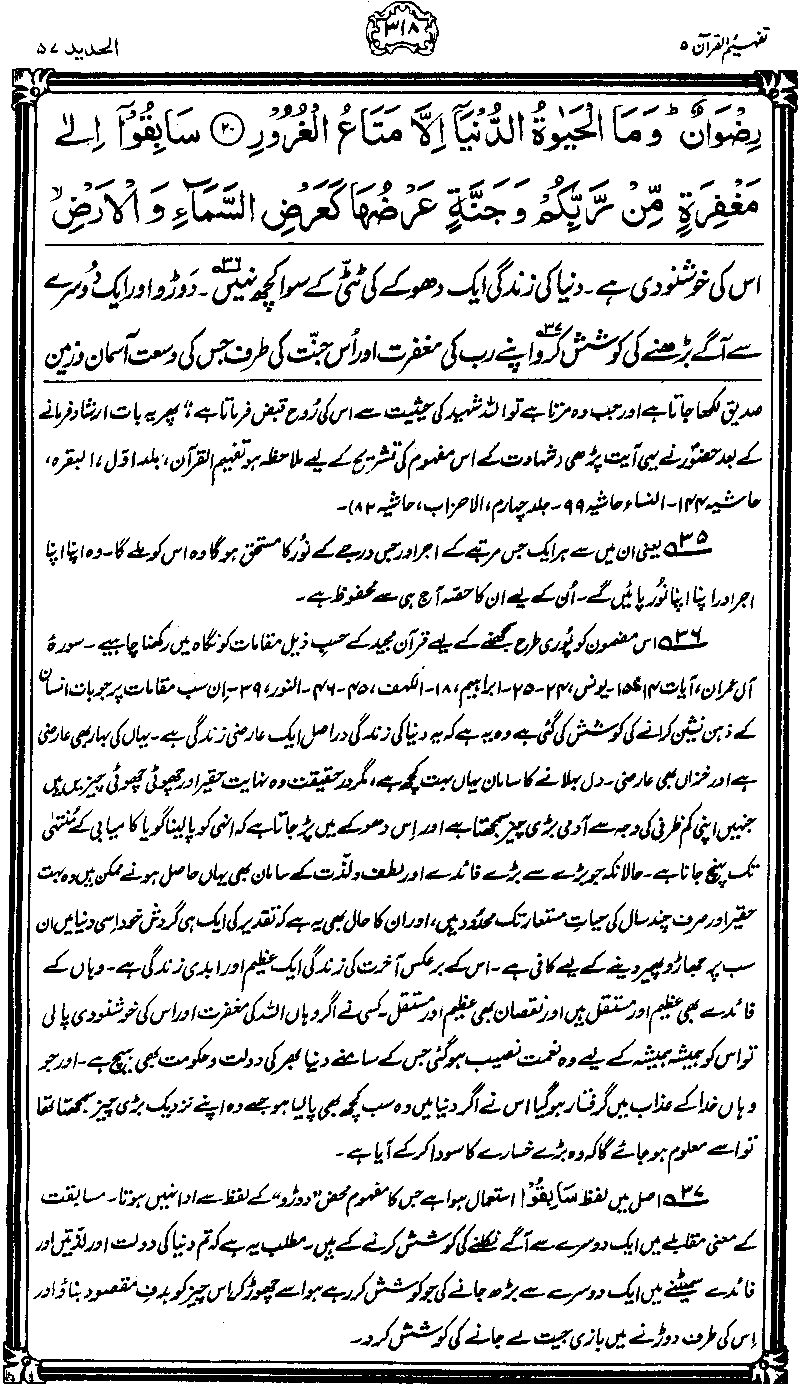 تفہیم القرآن ۵
۳۱۸
الحدید ۵۷
رِضْوَانٌ ؕ وَمَا الْحَیٰوةُ الدُّنْیَاۤ اِلَّا مَتَاعُ الْغُرُوْرِ ﴿۲۰﴾ سَابِقُوْۤا اِلٰی
مَغْفِرَةٍ مِّنْ رَّبِّكُمْ وَجَنَّةٍ عَرْضُهَا كَعَرْضِ السَّمَآءِ وَالْاَرْضِ ۙ
اس کی خوشنودی ہے۔ دنیا کی زندگی ایک دھوکے کی ٹٹّی کے سوا کچھ نہیں۳۶۔ دَوڑو اور ایک دُوسرے
سے آگے بڑھنے کی کوشش کرو۳۷ اپنے رب کی مغفرت اور اُس جنّت کی طرف جس کی وسعت آسمان و زمین
صدیق لکھا جاتا ہے اور جب وہ مرتا ہے تو اللہ شہید کی حیثیت سے اس کی رُوح قبض فرماتا ہے“، پھر یہ بات ارشاد فرمانے
کے بعد حضورؐ نے یہی آیت پڑھی (شہادت کے اس مفہوم کی تشریح کے لیے ملاحظہ ہو تفہیم القرآن، جلد اوّل، البقرہ،
حاشیہ ۱۴۴۔ النساء حاشیہ ۹۹۔ جلد چہارم، الاحزاب، حاشیہ ۸۲)۔
۳۵ یعنی ان میں سے ہر ایک جس مرتبے کے اجر اور جس درجے کے نُور کا مستحق ہوگا وہ اس کو ملے گا۔ وہ اپنا اپنا
اجر اور اپنا اپنا نُور پائیں گے۔ اُن کے لیے ان کا حصّہ آج ہی سے محفوظ ہے۔
۳۶ اس مضمون کو پُوری طرح سمجھنے کے لیے قرآن مجید کے حسبِ ذیل مقامات کو نگاہ میں رکھنا چاہیے۔ سورۂ
آل عمران، آیات ۱۴-۱۵۔ یونس، ۲۴-۲۵۔ ابراہیم، ۱۸۔ الکہف، ۴۵-۴۶۔ النور، ۳۹۔ اِن سب مقامات پر جو بات انسان
کے ذہن نشین کرانے کی کوشش کی گئی ہے وہ یہ ہے کہ یہ دنیا کی زندگی دراصل ایک عارضی زندگی ہے۔ یہاں کی بہار بھی عارضی
ہے اور خزاں بھی عارضی۔ دل بہلانے کا سامان یہاں بہت کچھ ہے، مگر درحقیقت وہ نہایت حقیر اور چھوٹی چھوٹی چیزیں ہیں
جنہیں اپنی کم ظرفی کی وجہ سے آدمی بڑی چیز سمجھتا ہے اور اِس دھوکے میں پڑ جاتا ہے کہ انہی کو پا لینا گویا کامیابی کے مُنتہیٰ
تک پہنچ جانا ہے۔ حالانکہ جو بڑے سے بڑے فائدے اور لطف و لذّت کے سامان بھی یہاں حاصل ہونے ممکن ہیں وہ بہت
حقیر اور صرف چند سال کی حیاتِ مستعار تک محدُود ہیں، اور ان کا حال بھی یہ ہے کہ تقدیر کی ایک ہی گردش خود اسی دنیا میں ان
سب پر جھاڑو پھیر دینے کے لیے کافی ہے۔ اس کے برعکس آخرت کی زندگی ایک عظیم اور ابدی زندگی ہے۔ وہاں کے
فائدے بھی عظیم اور مستقل ہیں اور نقصان بھی عظیم اور مستقل۔ کسی نے اگر وہاں اللہ کی مغفرت اور اس کی خوشنودی پا لی
تو اس کو ہمیشہ ہمیشہ کے لیے وہ نعمت نصیب ہو گئی جس کے سامنے دنیا بھر کی دولت و حکومت بھی ہیچ ہے۔ اور جو
وہاں خدا کے عذاب میں گرفتار ہو گیا اس نے اگر دنیا میں وہ سب کچھ بھی پا لیا ہو جسے وہ اپنے نزدیک بڑی چیز سمجھتا تھا
تو اسے معلوم ہو جائے گا کہ وہ بڑے خسارے کا سودا کر کے آیا ہے۔
۳۷ اصل میں لفظ سَابِقُوْۤا استعمال ہوا ہے جس کا مفہوم محض ”دوڑو“ کے لفظ سے ادا نہیں ہوتا۔ مسابقت
کے معنی مقابلے میں ایک دوسرے سے آگے نکلنے کی کوشش کرنے کے ہیں۔ مطلب یہ ہے کہ تم دنیا کی دولت اور لذّتیں اور
فائدے سمیٹنے میں ایک دوسرے سے بڑھ جانے کی جو کوشش کر رہے ہو اسے چھوڑ کر اس چیز کو ہدفِ مقصود بناؤ اور
اِس کی طرف دوڑنے میں بازی جیت لے جانے کی کوشش کرو۔